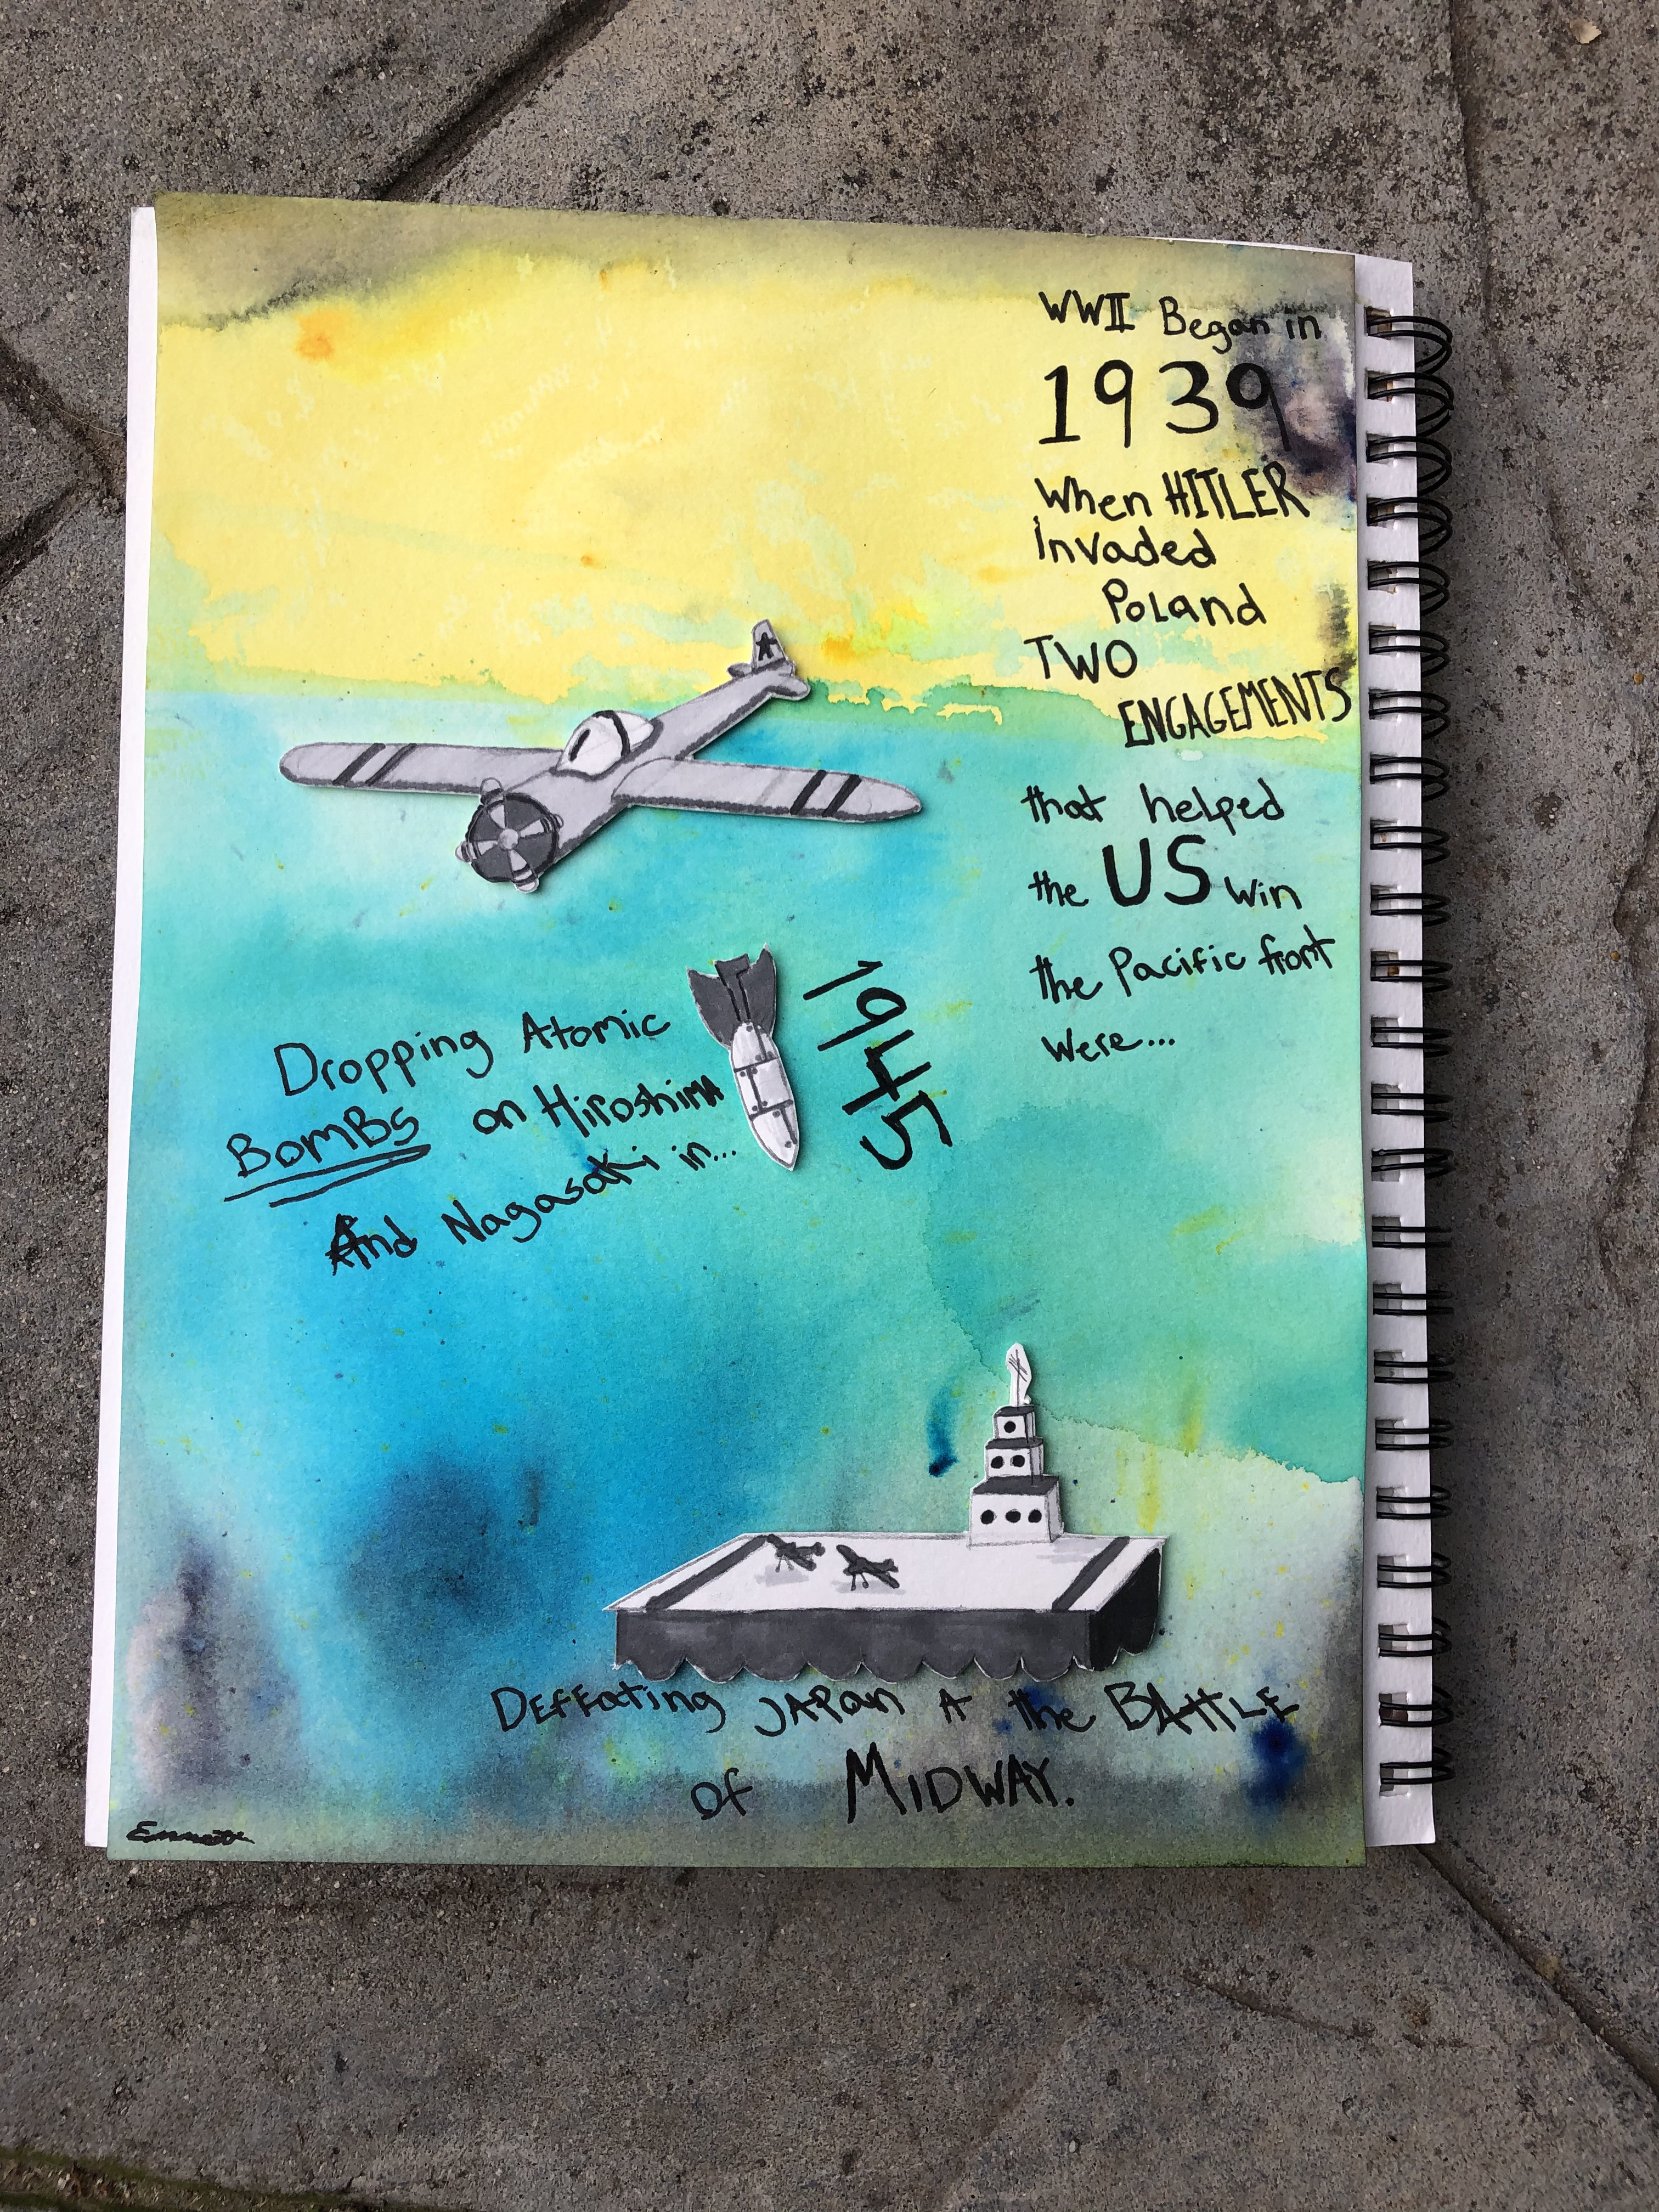 WWII Began in
1939
When HITLER
Invaded
Poland
TWO
ENGAGEMENTS
that helped
the US win
the Pacific front
were...
Dropping Atomic
BOMBS on Hiroshima
And Nagasaki in...
1945
DEFFeating JAPan A the BAttLE
of MIDWAY.
Emmett